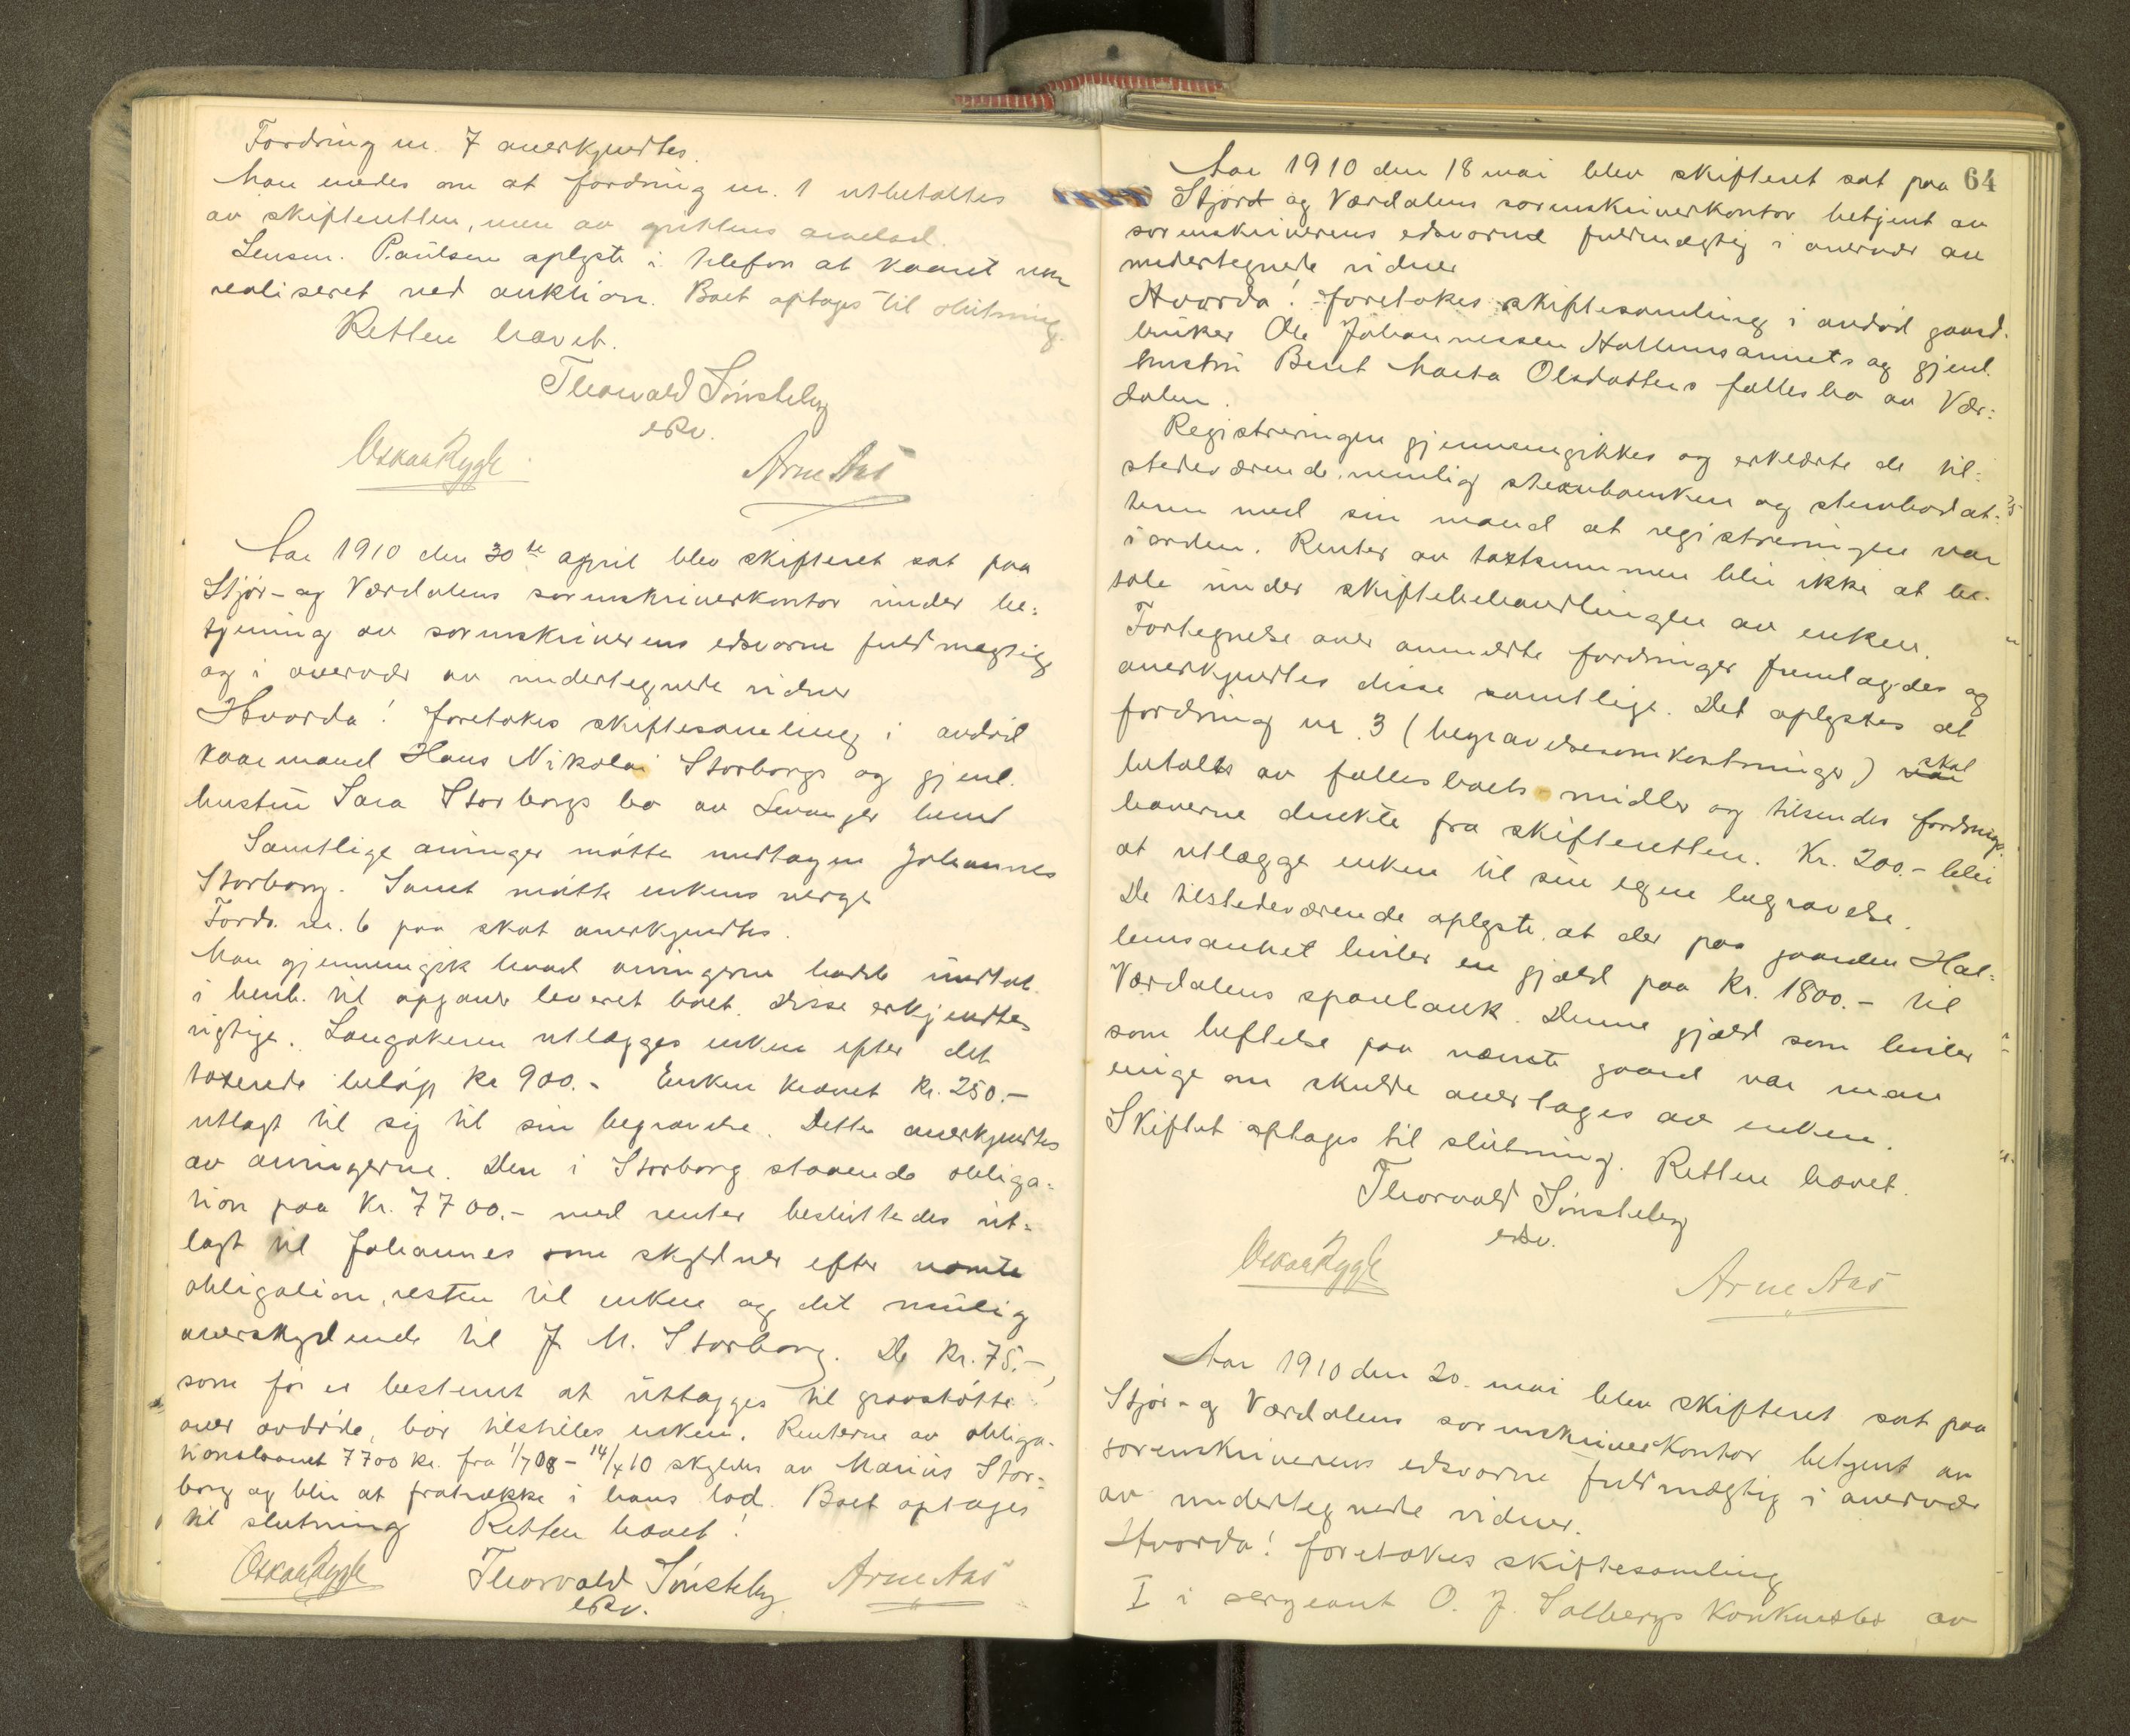 Fordring nr. 7 anerkjendtes.
Man enedes om at fordring nr. 1 utbetaltes
av skifteretten, men av enkens arvelod.
Lensm. Paulsen oplyste i telefon at vaaret var
realiseret ved auktion. Boet optages til slutning
Retten hævet.
Thorvald Sönsteby
edsv.
Oskar Rygh Arne Aas
Aar 1910 den 30te april blev skifteret sat paa
Stjør- og Værdalens sorenskriverkontor under be=
tjening av sorenskriverens edsvorne fuldmægtig
og i overvær av undertegnede vidner
Hvorda! foretokes skiftesamling i avdød
kaarmand Hans Nikolai Storborgs og gjenl.
hustru Sara Storborgs bo av Levanger land
Samtlige arvinger møtte undtagen Johannes
Storborg. Samt møtte enkens verge
Fordr. nr. 6 paa skat anerkjendtes.
Man gjennemgik hvad arvingerne hadde undtat
i henh. til opgave leveret boet. Disse erkjendtes
rigtige. Langakeren utlægges enken efter det
taxerede beløp kr 900.- Enken krævet kr. 250.-
utlagt til sig til sin begravelse. Dette anerkjendtes
av arvingerne. Den i Storborg staaende obliga=
tion paa kr. 7700.- med renter besluttedes ut=
lagt til Johannes som skyldner efter nævnte
obligation, resten til enken og det mulig
overskydende til J. M. Storborg. De kr. 75.-,
som før er bestemt at utlægges til gravstøtte
over avdøde, bør tilstilles enken. Renterne av obliga-
tionslaanet 7700 kr. fra 1/7 08 - 14/4 10 skyldes av Marius Stor=
borg og blir at fratrække i hans lod. Boet optages
til slutning Retten hævet!
Oskar Rygh Thorvald Sönsteby Arne Aas
edsv.
64
Aar 1910 den 18 mai blev skifteret sat paa
Stjørd og Værdalens sorenskriverkontor betjent av
sorenskriverens edsvorne fuldmægtig i overvær av
undertegnede vidner
Hvorda! foretokes skiftesamling i avdød gaard-
bruker Ole Johannessen Hallemsaunets og gjenl.
hustru Beret Marta Olsdatters fællesbo av Vær=
dalen.
Registreringen gjennemgikkes og erklærte de til=
stedeværende, nemlig stervboenken og stervbodat=
teren med sin mand at registreringen var
i orden. Renter av taxtsummen blir ikke at be-
tale under skiftebehandlingen av enken.
Fortegnelse over anmeldte fordringer fremlagdes og
anerkjendtes disse samtlige. Det oplystes at
fordring nr. 3 (begravelsesomkostninger) var skal
betalts av fællesboets midler og tilsendes fordrings-
haverne direkte fra skifteretten. Kr. 200.- blir
at utlægge enken til sin egen begravelse.
De tilstedeværende oplyste, at der paa gaarden Hal=
lemsaunet hviler en gjæld paa kr. 1800.- til
Værdalens sparebank. Denne gjæld som hviler
som heftelse paa nævnte gaard var man
enige om skulde overtages av enken.
Skiftet optages til slutning. Retten hævet.
Thorvald Sönsteby
edsv.
Oskar Rygh Arne Aas
Aar 1910 den 20. mai blev skifteret sat paa
Stjør- og Værdalens sorenskriverkontor betjent av
sorenskriverens edsvorne fuldmægtig i overvær
av undertegnede vidner.
Hvorda! foretokes skiftesamling
I i sergeant O. J. Solbergs konkursbo av